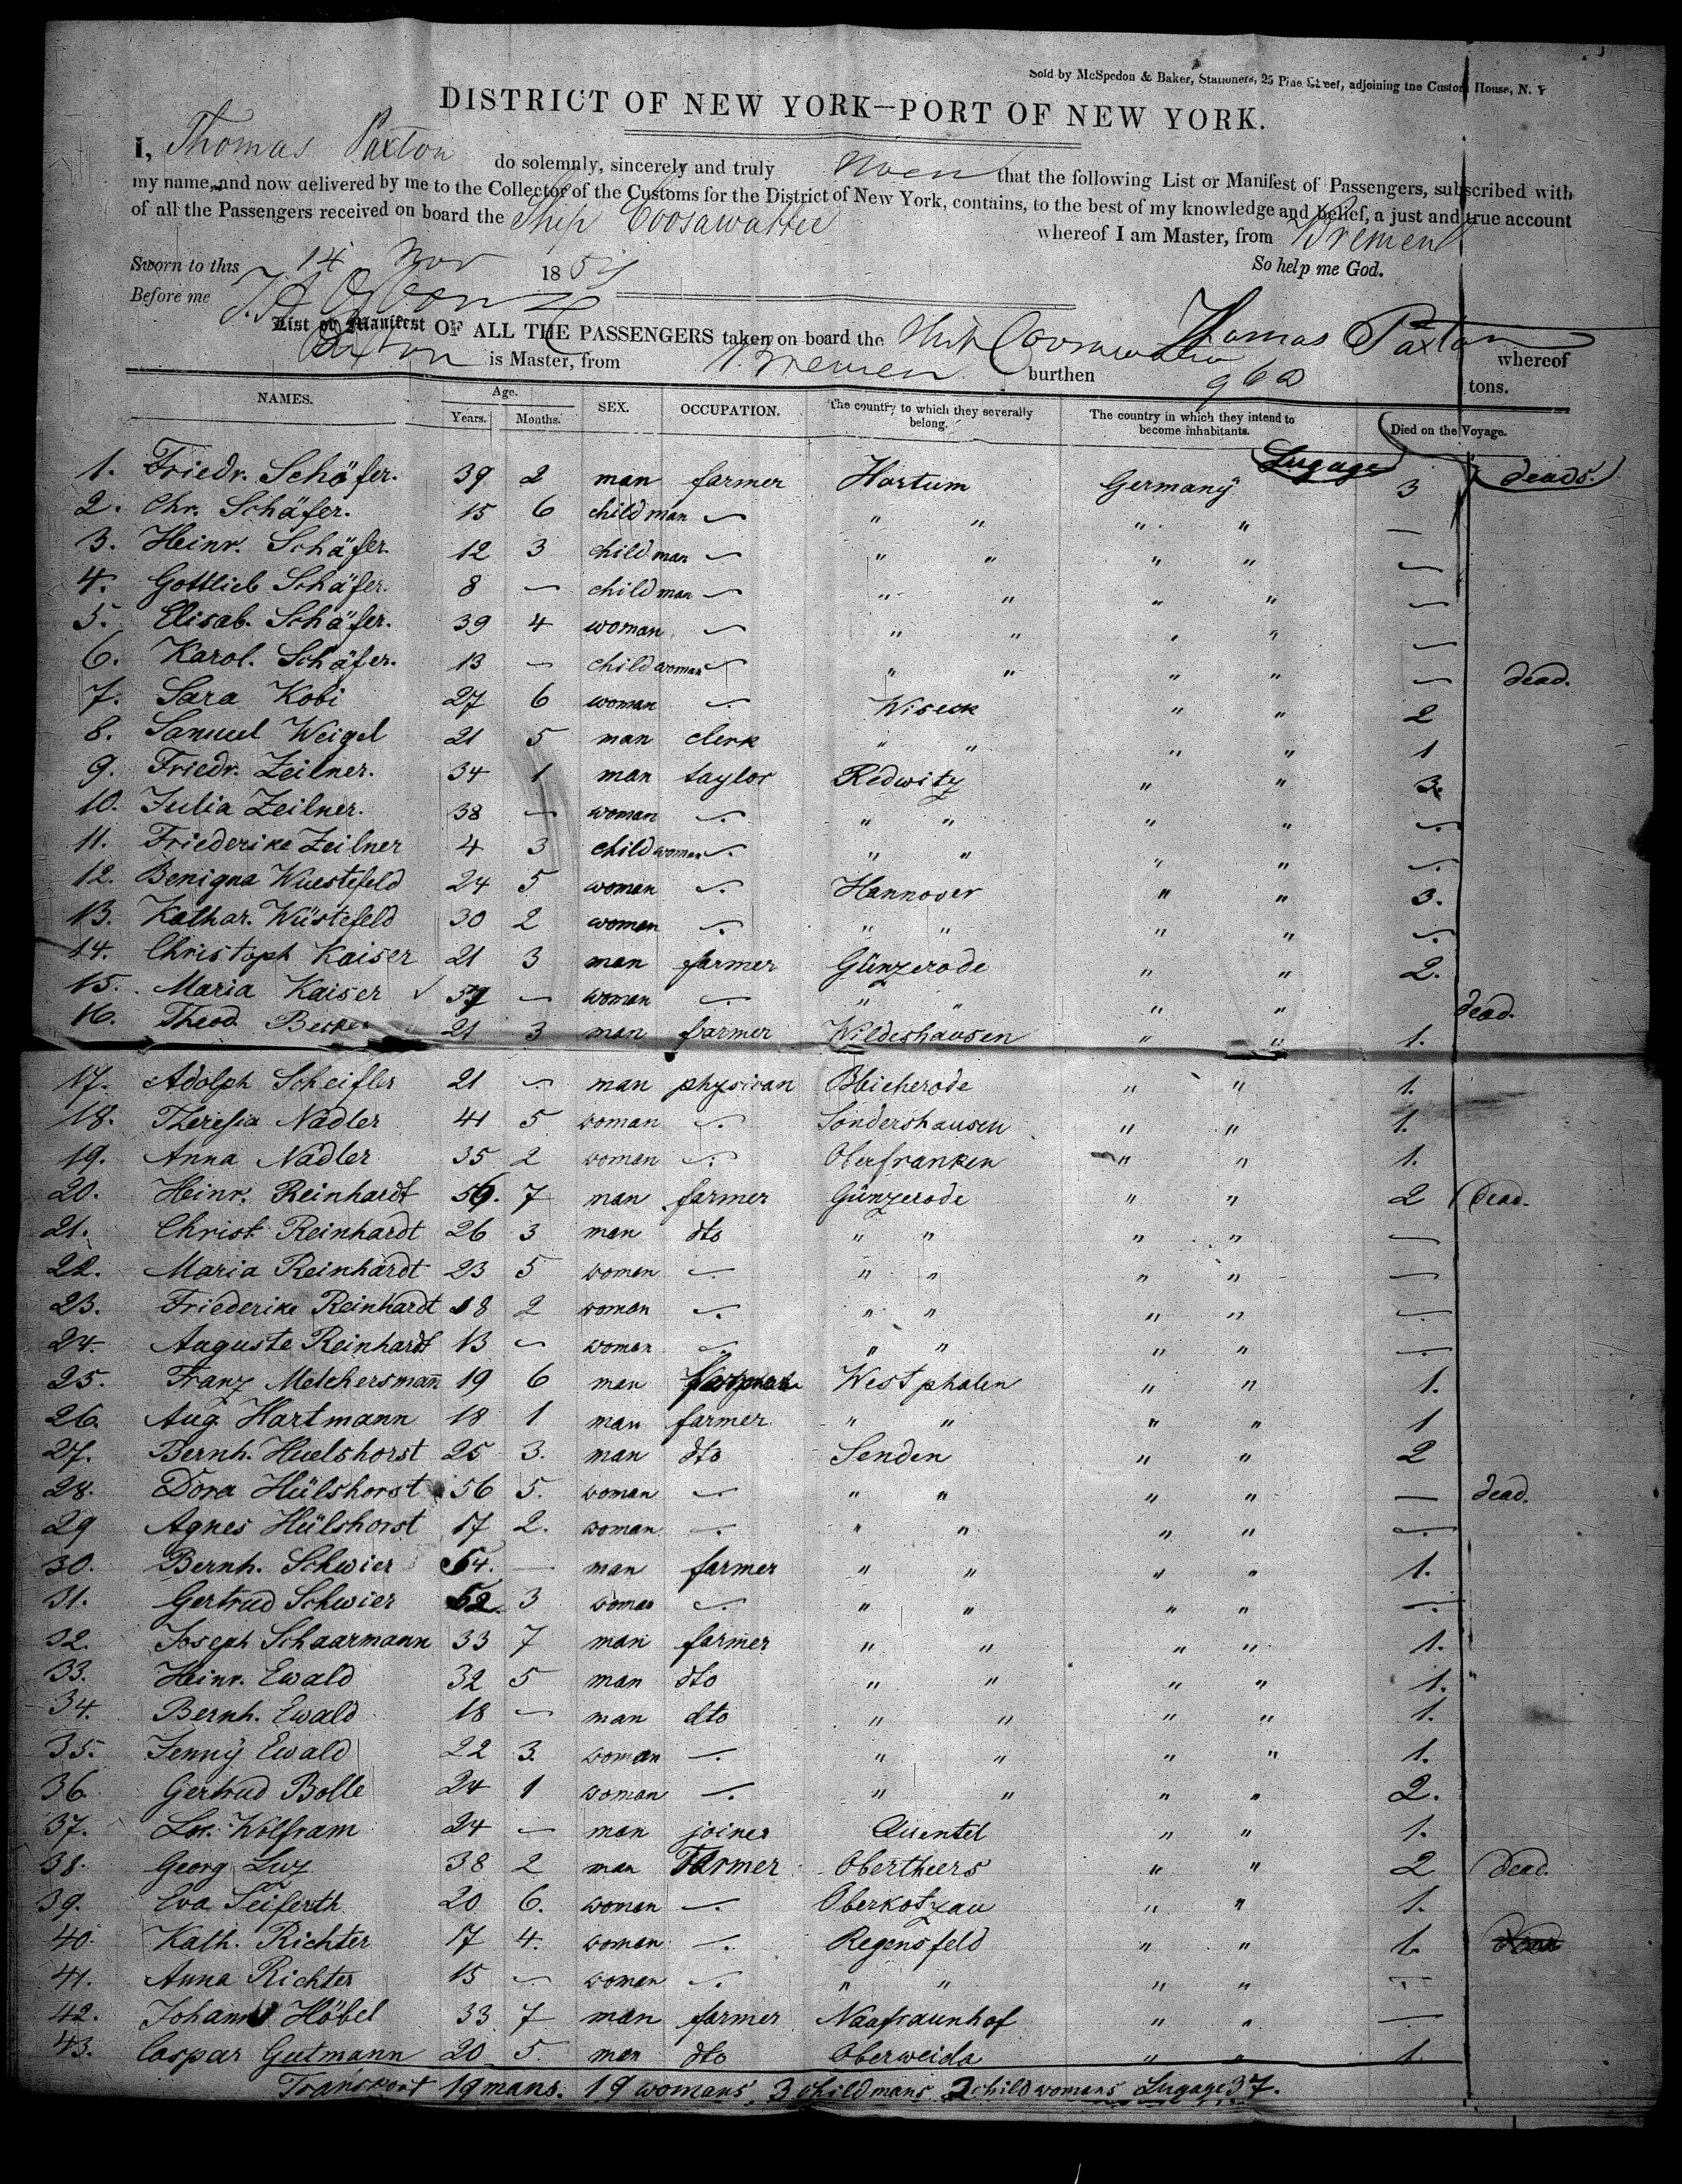 Sold by McSpedon & Baker, Stationers, 25 Pine Street, adjoining the Custom House, N. Y
DISTRICT OF NEW YORK—PORT OF NEW YORK.
I, Thomas Paxton do solemnly, sincerely and truly that the following List or Manifest of Passengers, subscribed with
my name, and now delivered by me to the Collector of the Customs for the District of New York, contains, to the best of my knowledge and belief, a just and true account
of all the Passengers received on board the Ship Coosawattee whereof I am Master, from Bremen
So help me God.
Sworn to this 14 Nov 185
Before me
Thomas Paxton
List or Manifest OF ALL THE PASSENGERS taken on board the Ship Coosawattee whereof
Paxton is Master, from Bremen burthen 960 tons.
NAMES. Age. Years. Months. SEX. OCCUPATION. The country to which they severally belong. The country in which they intend to become inhabitants. Died on the Voyage.
Lugage deads.
1. Friedr. Schäfer. 39 2 man farmer Hartum Germany 3
2. Chr. Schäfer. 15 6 child man — " " " " —
3. Heinr. Schäfer. 12 3 child man — " " " " —
4. Gottlieb Schäfer. 8 — child man — " " " " —
5. Elisab. Schäfer. 39 4 woman — " " " " —
6. Karol. Schäfer. 13 — child woman — " " " " — dead.
7. Sara Kobi 27 6 woman — Wiseck " " 2
8. Samuel Weigel 21 5 man clerk " " " " 1
9. Friedr. Zeilner. 34 1 man taylor Redwitz " " 3.
10. Julia Zeilner. 38 — woman —. " " " " —.
11. Friederike Zeilner 4 3 child woman —. " " " " —.
12. Benigna Wuestefeld 24 5 woman —. Hannover " " 3.
13. Kathar. Wüstefeld 30 2 woman —. " " " " —.
14. Christoph Kaiser 21 3 man farmer Günzerode " " 2.
15. Maria Kaiser ✓ 59 — woman — " " " " dead.
16. Theod. Becker 21 3 man farmer Wildeshausen " " 1.
17. Adolph Scheifler 21 — man physican Bleicherode " " 1.
18. Theresia Nadler 41 5 woman —. Sondershausen " " 1.
19. Anna Nädler 35 2 woman —. Oberfranken " " 1.
20. Heinr. Reinhardt 56. 7 man farmer Günzerode " " 2 dead.
21. Christ. Reinhardt 26 3 man dto " " " " —
22. Maria Reinhardt 23 5 woman — " " " " —
23. Friederike Reinhardt 18 2 woman —. " " " " —.
24. Auguste Reinhardt 13 — woman —. " " " " —.
25. Franz Melchersmañ 19 6 man Westphalen " " 1.
26. Aug. Hartmann 18 1 man farmer " " " " 1
27. Bernh. Huelshorst 25 3. man dto Senden " " 2
28. Dora Hülshorst 56 5. woman — " " " " — dead.
29 Agnes Hülshorst 17 2. woman —. " " " " —.
30. Bernh. Schwier 54. — man farmer " " " " 1.
31. Gertrud Schwier 52. 3 woman —. " " " " —.
32. Joseph Schaarmann 33 7 man farmer " " " " 1.
33. Heinr. Ewald 32 5 man dto " " " " 1.
34. Bernh. Ewald 18 — man dto " " " " 1.
35. Jenny Ewald 22 3. woman —. " " " " 1.
36. Gertrud Bolle 24 1 woman —. " " " " 2.
37. Lor. Wolfram 24 — man joiner Quentel " " 1.
38. Georg Luz 38 2 man Farmer Obertheers " " 2 dead.
39. Eva Seiferth 20 6. woman —. Oberkotzau " " 1.
40. Kath. Richter 17 4. woman —. Regensfeld " " 1.
41. Anna Richter 15 — woman —. " " " " —
42. Johann Höbel 33 7 man farmer Naafraunhof " " —
43. Caspar Gutmann 20 5. man dto Oberweida " " 1.
Transport 19 mans. 19 womans, 3 child mans. 2 child womans Lugage 37.